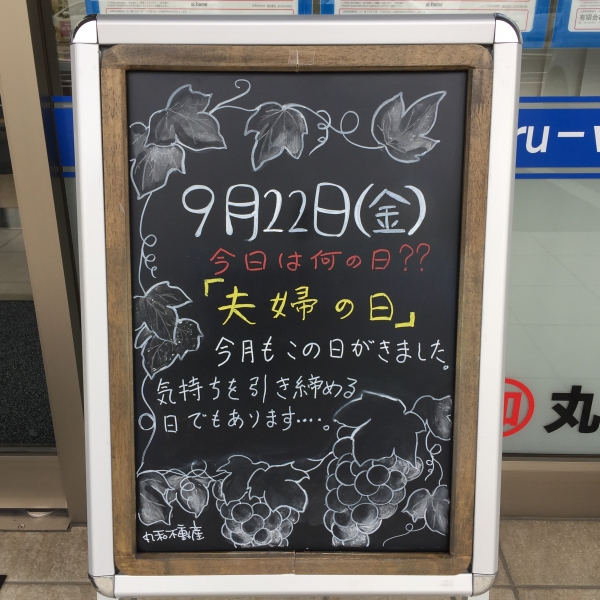 9月22日(金)
今日は何の日??
「夫婦の日」
今月もこの日がきました。
気持ちを引き締める
日でもあります‥‥。
丸和不動産
ru-w
和 丸